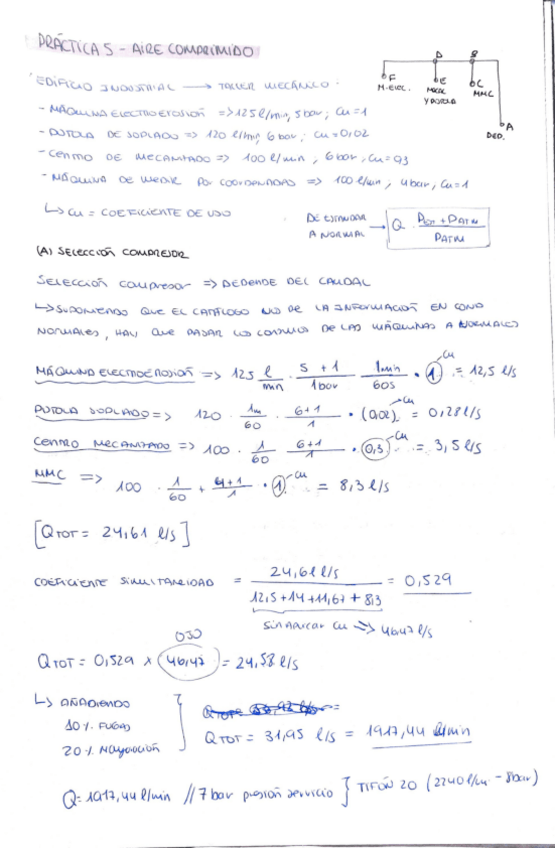 PRÁCTICA 5 - AIRE COMPRIMIDO
D B
F E C
M. ELEC. MMC
Y PISTOLA
A
DED.
EDIFICIO INDUSTRIAL → TALLER MECÁNICO:
- MÁQUINA ELECTROEROSIÓN => 125 l/min, 5 bar; Cu=1
- PISTOLA DE SOPLADO => 120 l/min, 6 bar; Cu=0,02
- CENTRO DE MECANIZADO => 100 l/min, 6 bar, Cu=0,3
- MÁQUINA DE MEDIR POR COORDENADAS => 100 l/min, 4 bar, Cu=1
↳ Cu = COEFICIENTE DE USO
DE ESTANDAR A NORMAL → Q · (Pman + PATM) / PATM
(A) SELECCIÓN COMPRESOR
SELECCIÓN compresor => DEPENDE DEL CAUDAL
↳ SUPONIENDO QUE EL CATÁLOGO NOS DE LA INFORMACIÓN EN COND
NORMALES, HAY QUE PASAR LOS CONSUMOS DE LAS MÁQUINAS A NORMALES
MÁQUINA ELECTROEROSIÓN => 125 l/min · (5+1)/1bar · 1min/60s · 1 Cu = 12,5 l/s
PISTOLA SOPLADO => 120 · 1m/60 · (6+1)/1 · (0,02) Cu = 0,28 l/s
CENTRO MECANIZADO => 100 · 1/60 · (6+1)/1 · 0,3 Cu = 3,5 l/s
MMC => 100 · 1/60 + (4+1)/1 · 1 Cu = 8,3 l/s
[QTOT = 24,61 l/s]
COEFICIENTE SIMULTANEIDAD = 24,61 l/s / (12,5+14+11,67+8,3) = 0,529
sin aplicar Cu => 46,47 l/s
OJO
QTOT = 0,529 x 46,47 = 24,58 l/s
↳ AÑADIENDO
10% FUGAS
20% Mayoración
QTOT = 31,95 l/s = 1917,44 l/min
Q = 1917,44 l/min // 7 bar presión servicio } TIFÓN 20 (2240 l/min - 8bar)